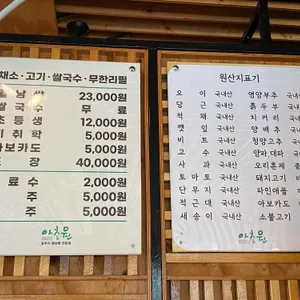 채소·고기·쌀국수·무한리필
남쌈 23,000원
쌀국수 무료
초등생 12,000원
취학 5,000원
아보카도 5,000원
포장 40,000원
료수 2,000원
주 5,000원
주 5,000원
아초원
원산지표기
오이 국내산
당근 국내산
적채 국내산
깻잎 국내산
비트 국내산
고수 국내산
사과 국내산
토마토 국내산
단무지 국내산
적근대 국내산
새송이 국내산
영양부추 국내산
치커리
양배추
청양고추
양파,대파
오리훈제
돼지고기
파인애플
아보카도
소불고기
아초원